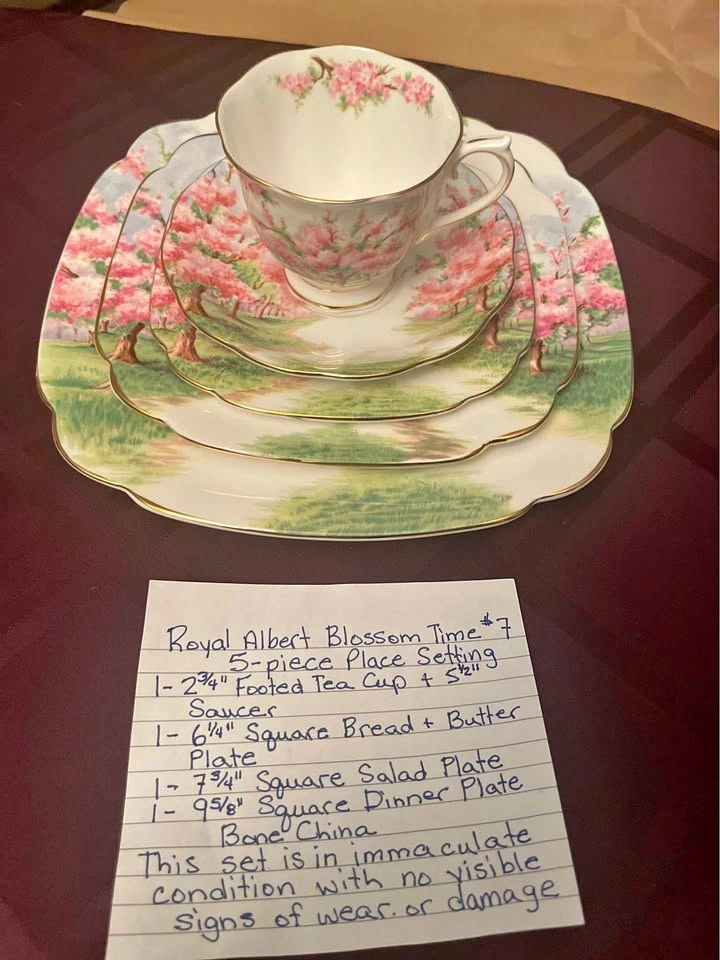 Royal Albert Blossom Time #7
5-piece Place Setting
1- 2 3/4" Footed Tea Cup + 5 1/2"
Saucer
1- 6 1/4" Square Bread + Butter
Plate
1- 7 3/4" Square Salad Plate
1- 9 5/8" Square Dinner Plate
Bone China
This set is in immaculate
condition with no visible
signs of wear. or damage